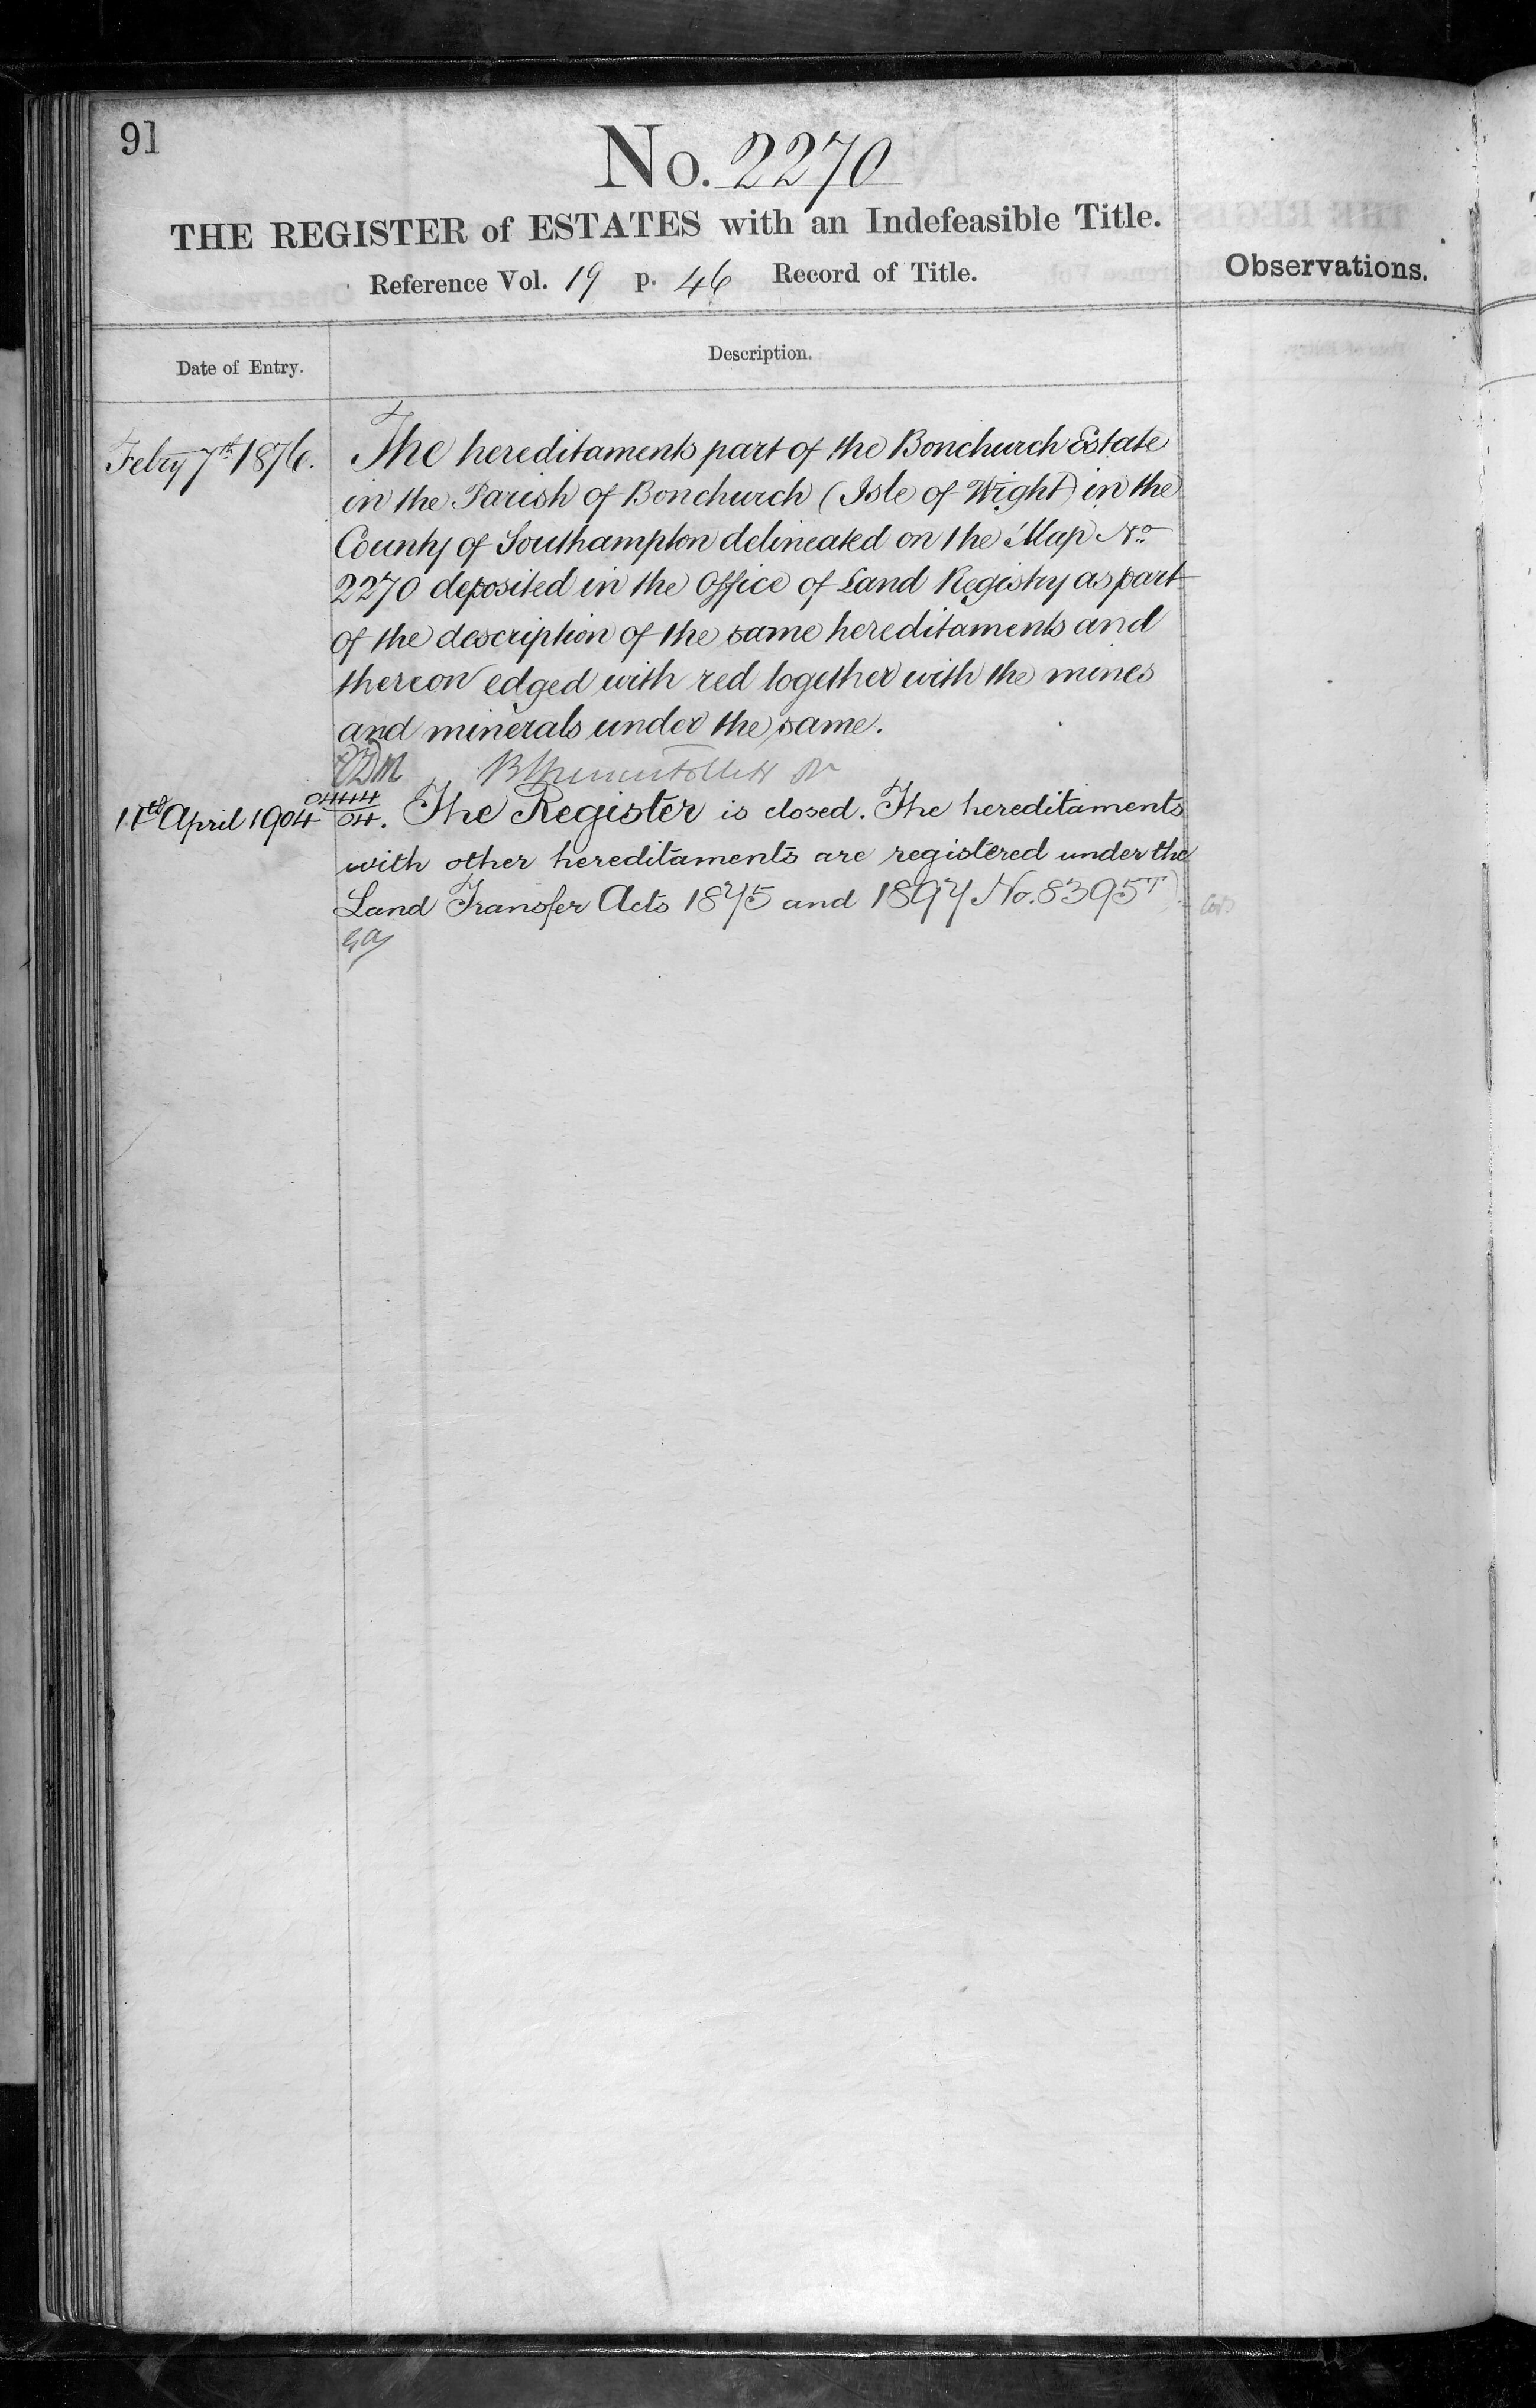 91
No. 2270
THE REGISTER of ESTATES with an Indefeasible Title.
Reference Vol. 19 p. 46 Record of Title.
Observations.
Date of Entry.
Description.
Febry 7th 1876.
The hereditaments part of the Bonchurch Estate
in the Parish of Bonchurch (Isle of Wight) in the
County of Southampton delineated on the Map No
2270 deposited in the Office of Land Registry as part
of the description of the same hereditaments and
thereon edged with red together with the mines
and minerals under the same.
11th April 1904
04. The Register is closed. The hereditaments
with other hereditaments are registered under the
Land Transfer Acts 1875 and 1897 No. 8395